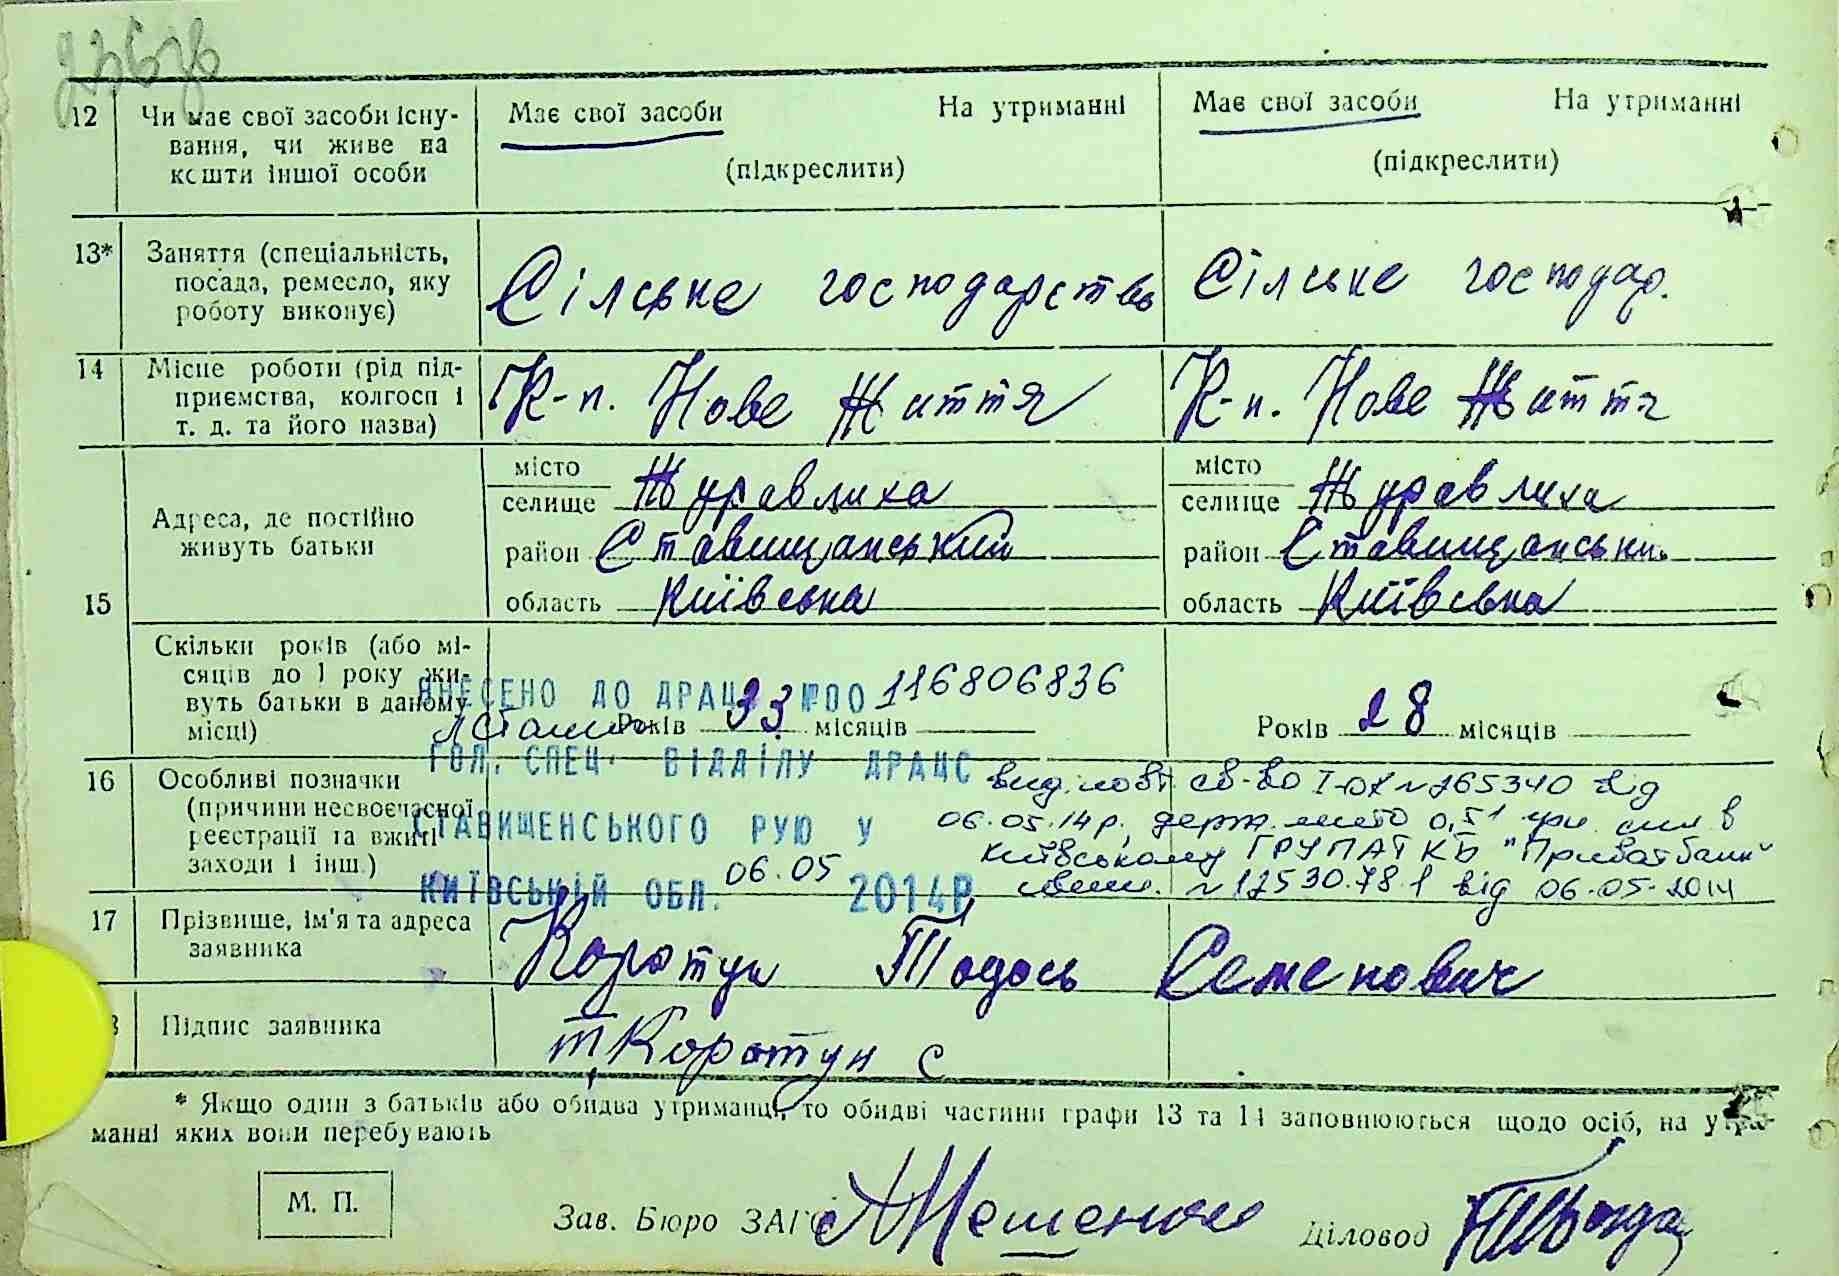 12 Чи має свої засоби існу- Має свої засоби На утриманні Має свої засоби На утриманні
вання, чи живе на
кошти іншої особи (підкреслити) (підкреслити)
13* Заняття (спеціальність,
посада, ремесло, яку Сілське господарство Сілське господар.
роботу виконує)
14 Місце роботи (рід під-
приємства, колгосп і К-п. Нове Життя К-п. Нове Життя
т. д. та його назва)
15 Адреса, де постійно
живуть батьки
місто місто
селище Журавлиха селище Журавлиха
район Ставищанський район Ставищанський
область Київська область Київська
Скільки років (або мі-
сяців до 1 року жи-
вуть батьки в даному
місці) Років 33 місяців Років 28 місяців
ВНЕСЕНО ДО ДРАЦС №00 116806836
ГОЛ. СПЕЦ. ВІДДІЛУ ДРАЦС
СТАВИЩЕНСЬКОГО РУЮ У
КИЇВСЬКІЙ ОБЛ. 06.05 2014Р.
16 Особливі позначки
(причини несвоєчасної
реєстрації та вжиті
заходи і інш.)
вид. повт. св-во І-ОК № 265340 від
06.05.14р., держ. мито 0,51 грн. спл. в
Київському ГРУ ПАТ КБ "Приватбанк"
№ 12530.78.1 від 06.05.2014
17 Прізвище, ім'я та адреса
заявника Коротун Тодось Семенович
Підпис заявника т Коротун с
* Якщо один з батьків або обидва утриманці, то обидві частини графи 13 та 14 заповнюються щодо осіб, на утри-
манні яких вони перебувають
М. П. Зав. Бюро ЗАГС Діловод